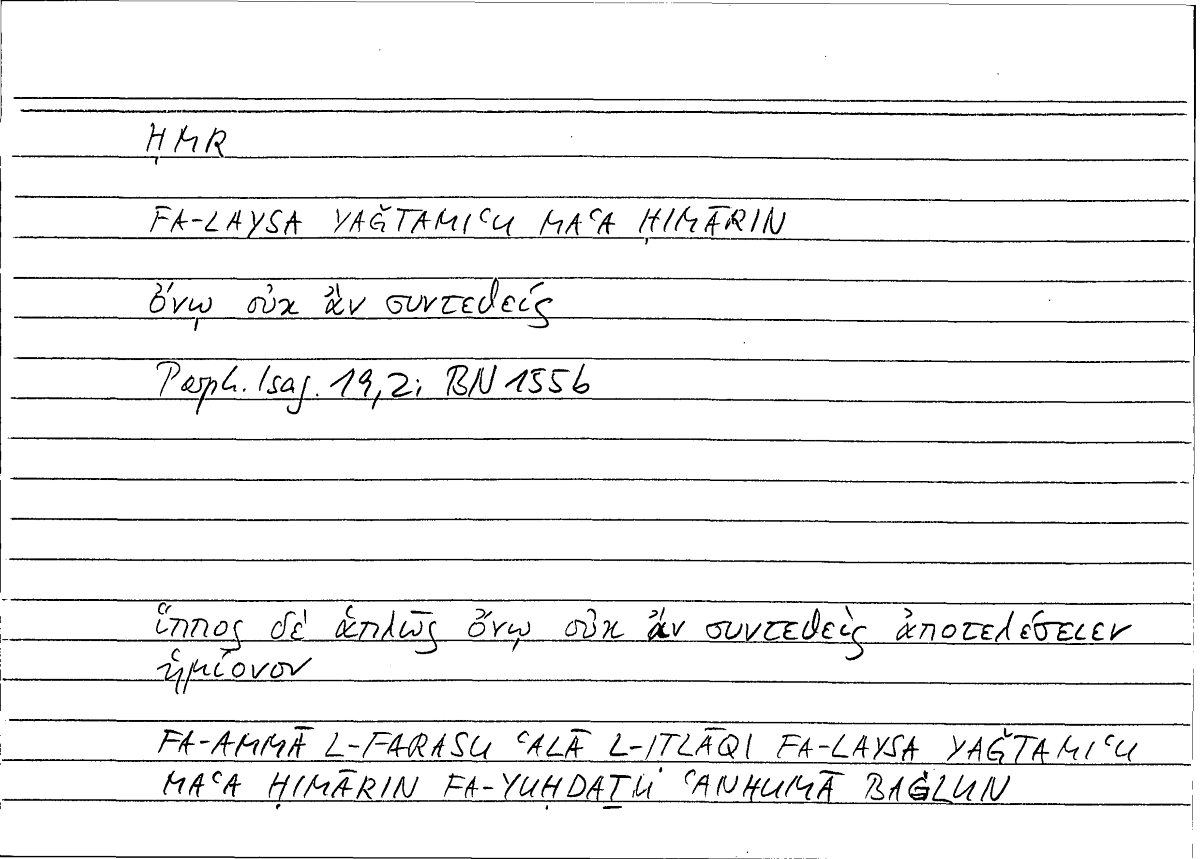 ḤMR
FA-LAYSA YAǦTAMIʿU MAʿA ḤIMĀRIN
ὄνῳ οὐκ ἂν συντεθείς
Porph. Isag. 19,2; BN 155b
ἵππος δὲ ἁπλῶς ὄνῳ οὐκ ἂν συντεθεὶς ἀποτελέσειεν
ἡμίονον
FA-AMMĀ L-FARASU ʿALĀ L-IṬLĀQI FA-LAYSA YAǦTAMIʿU
MAʿA ḤIMĀRIN FA-YUḤDAṮU ʿANHUMĀ BAĠLUN